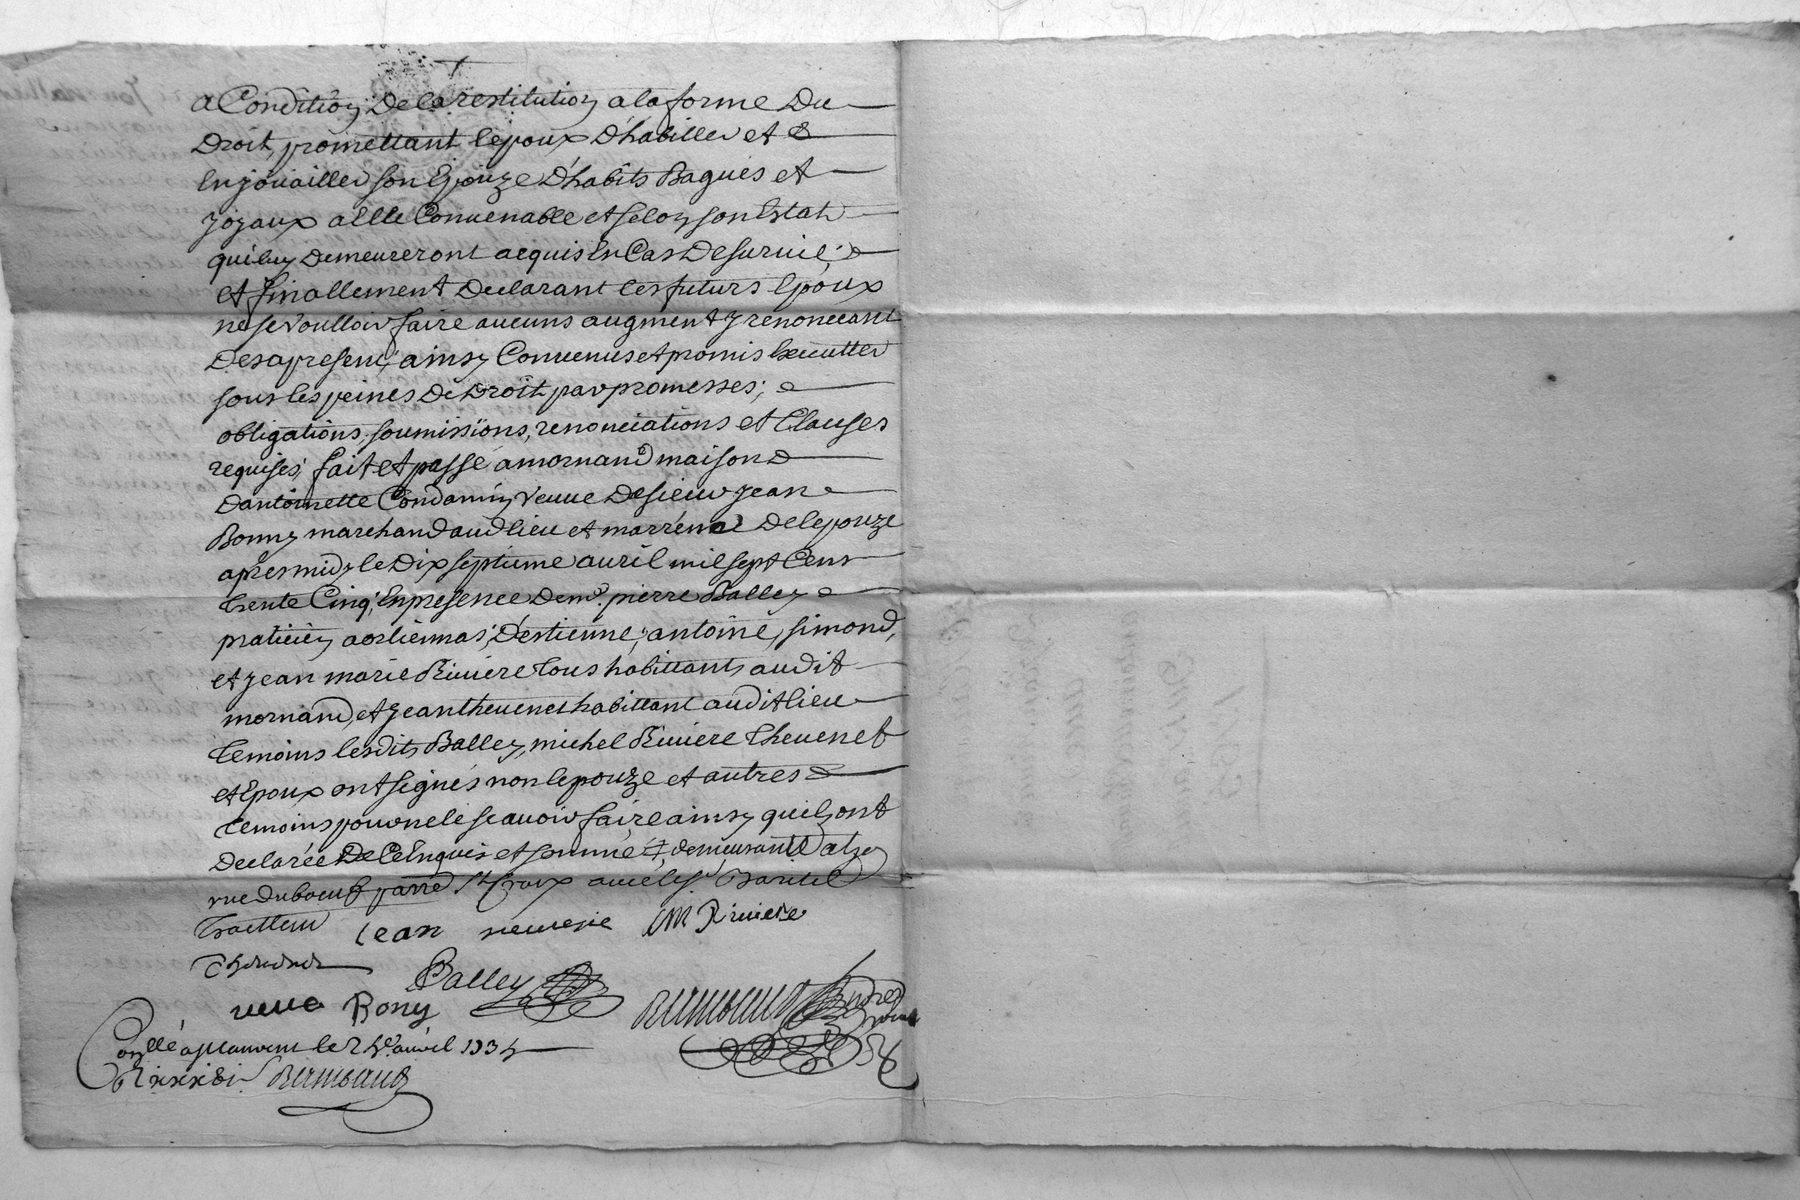 a Condition De la restitution a la forme Du
Droit, promettant lepoux D'habiller et
Enjouailler son Epouze D'habits Bagues et
Joyaux a Elle Convenable et selon son Estat
qui luy Demeureront acquis En Cas De survie,
et finallement Declarant les futurs Epoux
ne se voulloir faire aucuns augment y renonceant
Des a present, ainsy Convenus et promis Executter
sous les peines De Droit par promesses;
obligations, soumissions, renonciations et Clauses
requises; fait et passé a mornand maison
D'antoinette Condamin veuve De sieur Jean
Bonny marchand aud lieu et marréne De lepouze
apres midy le Dix septieme auril mil sept Cent
trente Cinq, En presence De me. pierre Balley
praticien a orliennas, D'estienne, antoine, simond,
et Jean marie Riviere tous habittants audit
mornand, et Jean thevenet habittant audit lieu
temoins lesdits Balley, michel Riviere thevenet
et Epoux ont signés non lepouze et autres
temoins pour ne le scauoir faire ainsy quils ont
Declarée De ce Enquis et sommé demeurant
rue du boeuf St Croix avec le sr
traitteur Jean M Riviere
Balley
veuve Bony
Conllé a Mornant le avril 1735